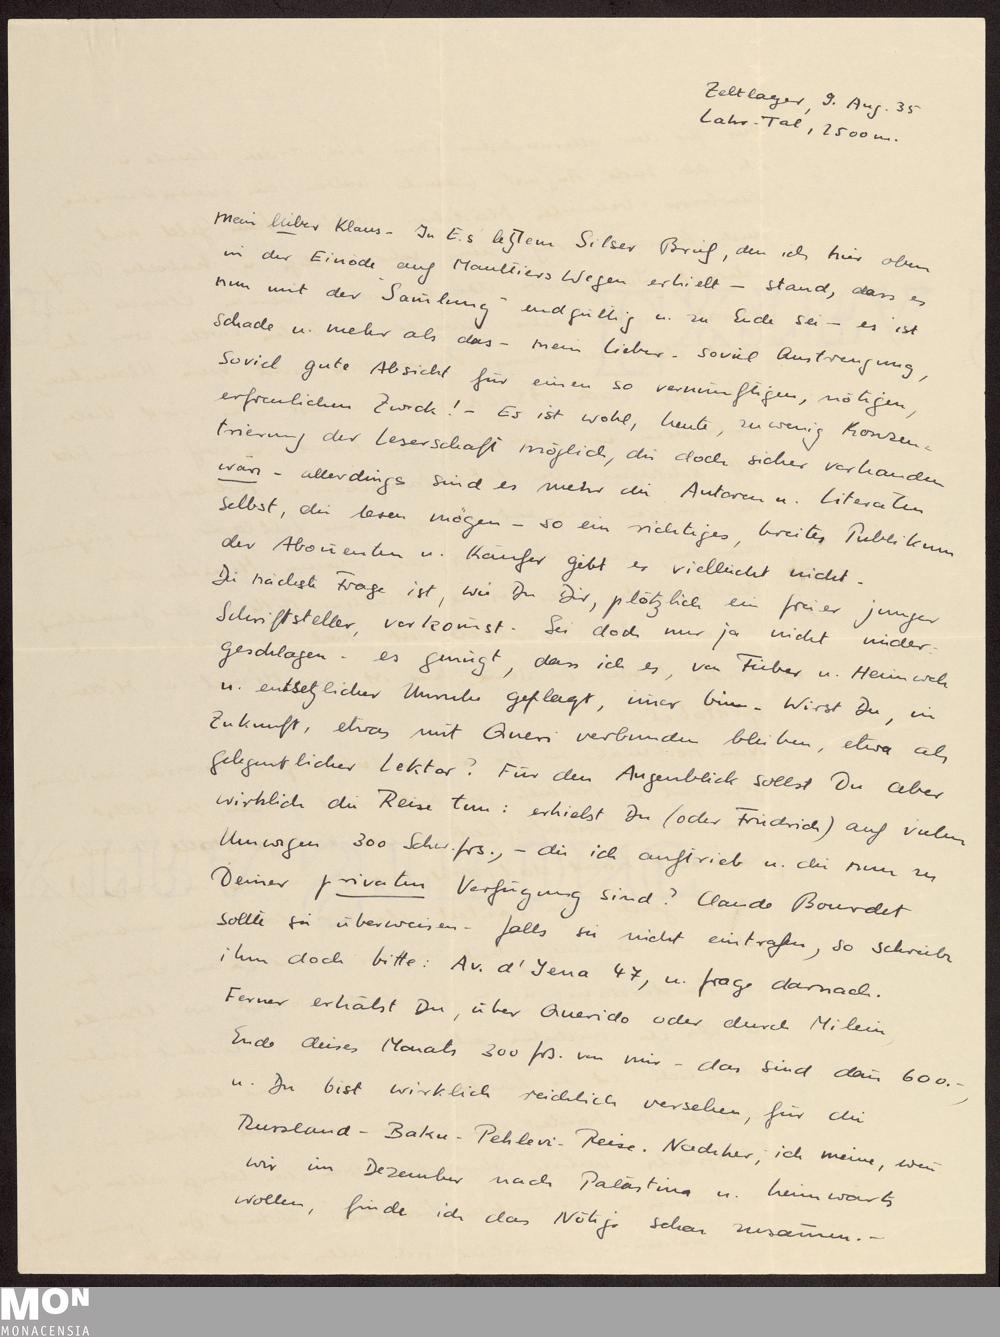 Zeltlager, 9. Aug. 35
Lahr-Tal, 2500 m.
Mein lieber Klaus - In E.s letztem Silser Brief, den ich hier oben
in der Einöde auf Maultiers Wegen erhielt - stand, dass es
nun mit der "Samlung" endgültig u. zu Ende sei - es ist
schade u. mehr als das - mein Lieber - soviel Anstrengung,
soviel gute Absicht für einen so vernünftigen, nötigen,
erfreulichen Zweck! - Es ist wohl, heute, zuwenig Konzen-
trierung der Leserschaft möglich, die doch sicher vorhanden
wäre - allerdings sind es mehr die Autoren u. Literaten
selbst, die lesen mögen - so ein richtiges, breites Publikum
der Abonenten u. Käufer gibt es vielleicht nicht -
Die nächste Frage ist, wie Du Dir, plötzlich ein freier junger
Schriftsteller, vorkomst. Sei doch nur ja nicht nieder-
geschlagen - es genügt, dass ich es, von Fieber u. Heimweh
u. entsetzlicher Unruhe geplagt, imer bin - Wirst Du, in
Zukunft, etwas mit Queri verbunden bleiben, etwa als
gelegentlicher Lektor? Für den Augenblick sollst Du aber
wirklich die Reise tun: erhielst Du (oder Friedrich) auf vielen
Umwegen 300 Schw.frs., - die ich auftrieb u. die nun zu
Deiner privaten Verfügung sind? Claude Bourdet
sollte sie überweisen - falls sie nicht eintrafen, so schreib
ihm doch bitte: Av. d'Jena 47, u. frage darnach.
Ferner erhälst Du, über Querido oder durch Milein,
Ende dieses Monats 300 frs. von mir - das sind dan 600.-,
u. Du bist wirklich reichlich versehen, für die
Russland - Baku - Pehlevi - Reise. Nachher, ich meine, wen
wir im Dezember nach Palästina u. heimwärts
wollen, finde ich das Nötige schon zusamen. -
MON
MONACENSIA